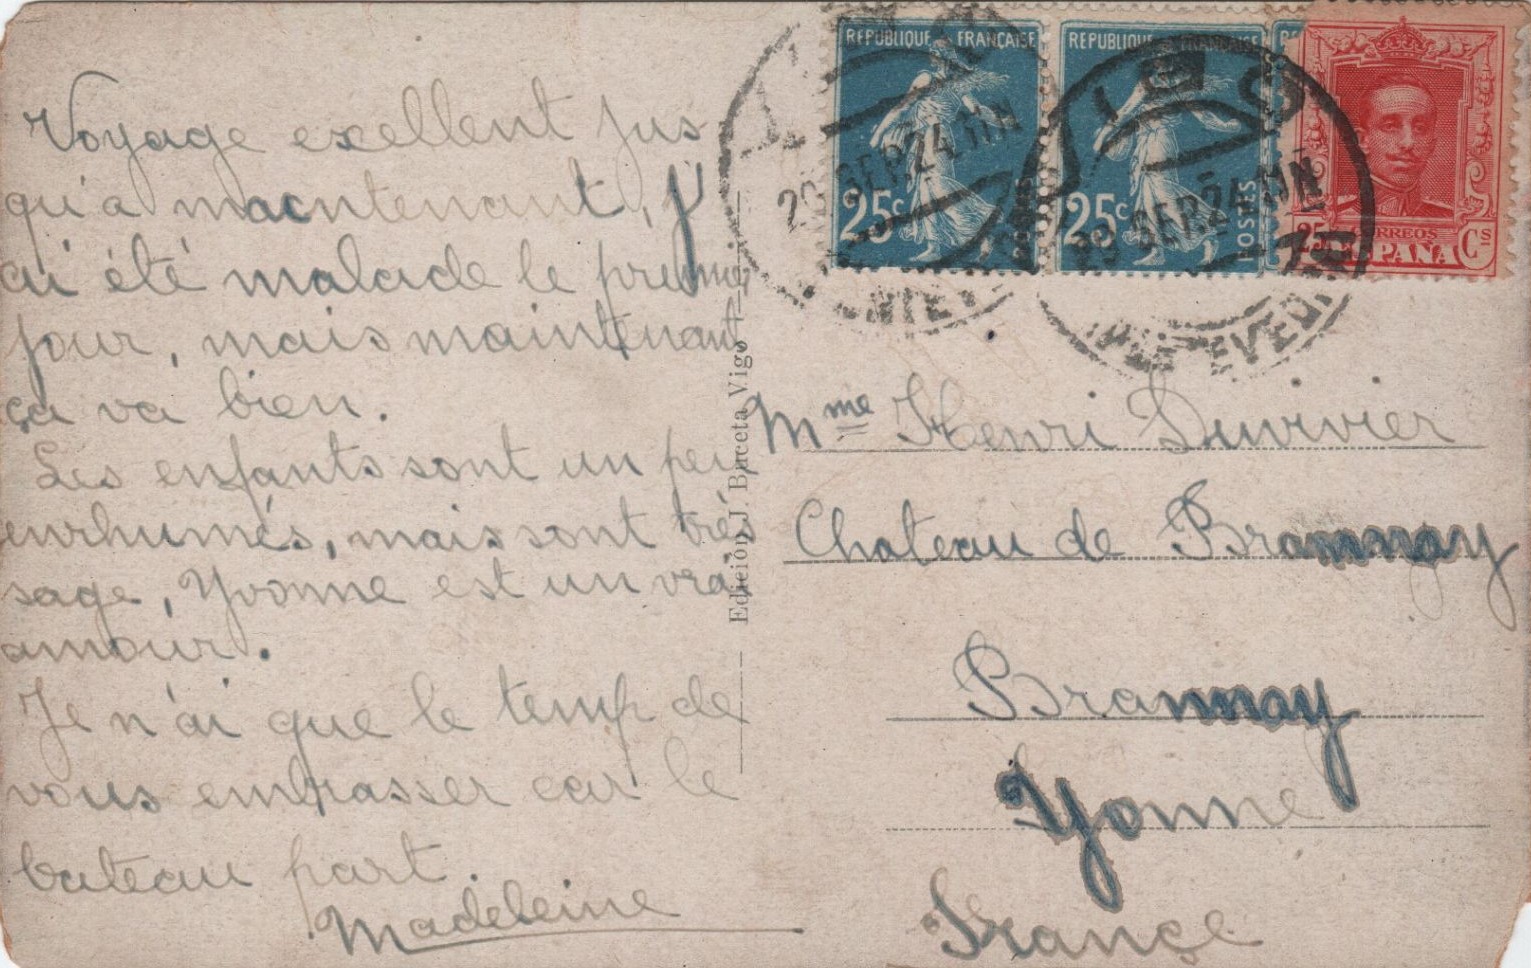 Voyage excellent jus
qu'a maintenant, j'
ai été malade le premier
jour, mais maintenant
ça va bien.
Les enfants sont un peu
enrhumés, mais sont très
sage, Yvonne est un vrai
amour.
Je n'ai que le temp de
vous embrasser car le
bateau part.
Madeleine
Edición J. Buceta Vigo
REPUBLIQUE FRANÇAISE
25c
POSTES
REPUBLIQUE FRANÇAISE
25c
POSTES
25 CORREOS Cs
ESPAÑA
VIGO
29 SEP.24 11N
PONTEVEDRA
VIGO
29 SEP.24 11N
PONTEVEDRA
Mme Henri Duvivier
Chateau de Brannay
Brannay
Yonne
France